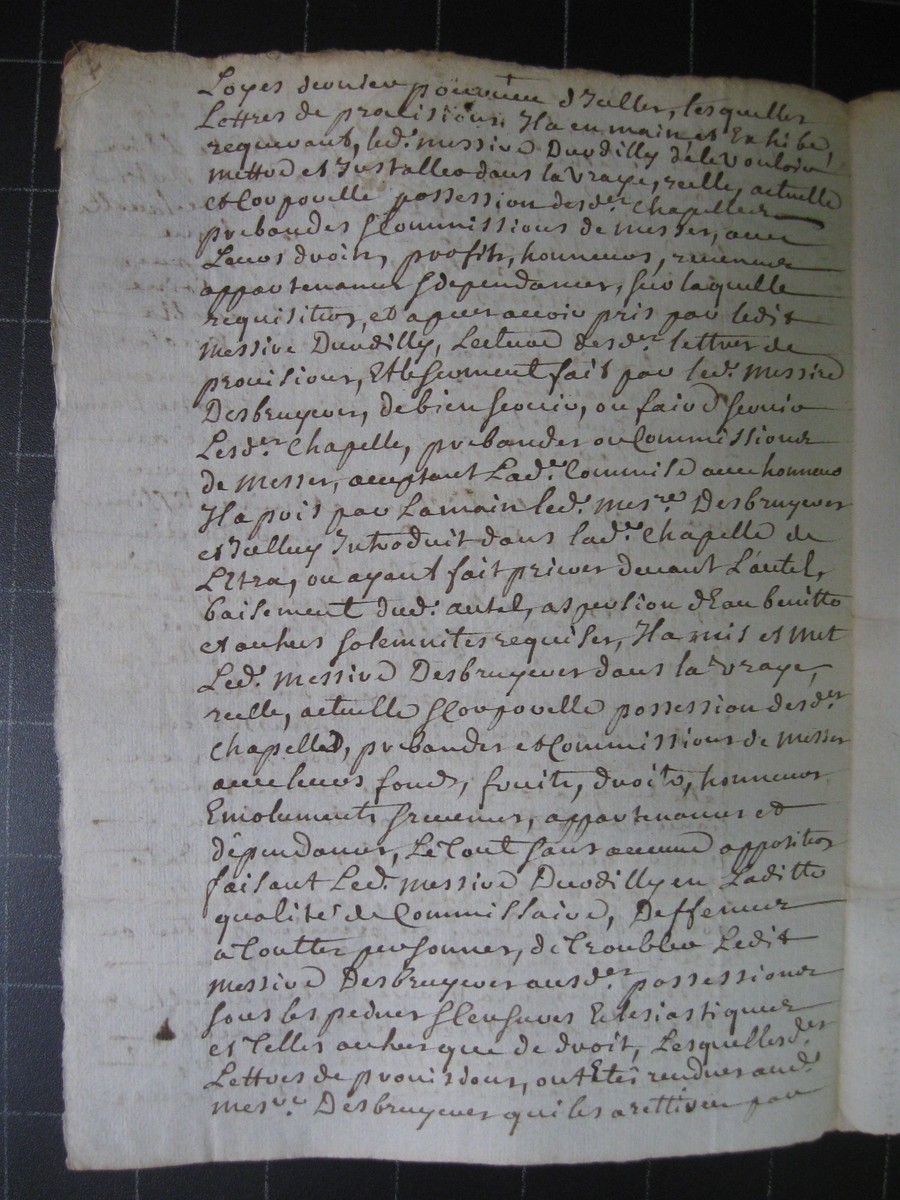 Loyes dernier pourvueu d'Jcelles, lesquelles
Lettres de prouisions, Il a en main et Exhibé,
requerant, led. messire Durdilly de le vouloir
mettre et Installer dans la vraye, reelle, actuelle
et Corporelle possession desd.es Chapelle
prebandes & Commissions de messes, auec
Leurs droits, profits, honneurs, reuenues
appartenances & dependances, sur laquelle
requisition, et apres auoir pris par ledit
messire Durdilly, Lecture desd.es lettres de
prouisions, Et le serment fait par led. messire
Desbruyeres, de bien seruir, ou faire seruir
Lesd.es Chapelle, prebandes ou Commissions
de messes, acceptant Lad.e Commise auec honneur
Il a pris par La main led. mes.re Desbruyeres
et Jcelluy Introduit dans lad.e Chapelle de
L'Etra, ou ayant fait prieres deuant L'autel,
baisement dud. autel, aspersion d'Eau benitte
et autres solemnites requises, Il a mis et met
Led. messire Desbruyeres dans la vraye,
reelle, actuelle & Corporelle possession desd.es
Chapelles, prebandes et Commissions de messes
auec leurs fonds, fruits, droits, honneurs
Emoluments & reuenues, appartenances et
dépendances, Le Tout sans aucune opposition
faisant Led. messire Durdilly en Laditte
qualité de Commissaire, Deffences
a Touttes personnes, de Troubler Ledit
messire Desbruyeres ausd.es possessions
sous les peines & Censures Eclesiastiques
et Telles autres que de droit, Lesquelles d.es
Lettres de prouisions, ont Eté rendues aud.
mes.re Desbruyeres qui les a rettirées par